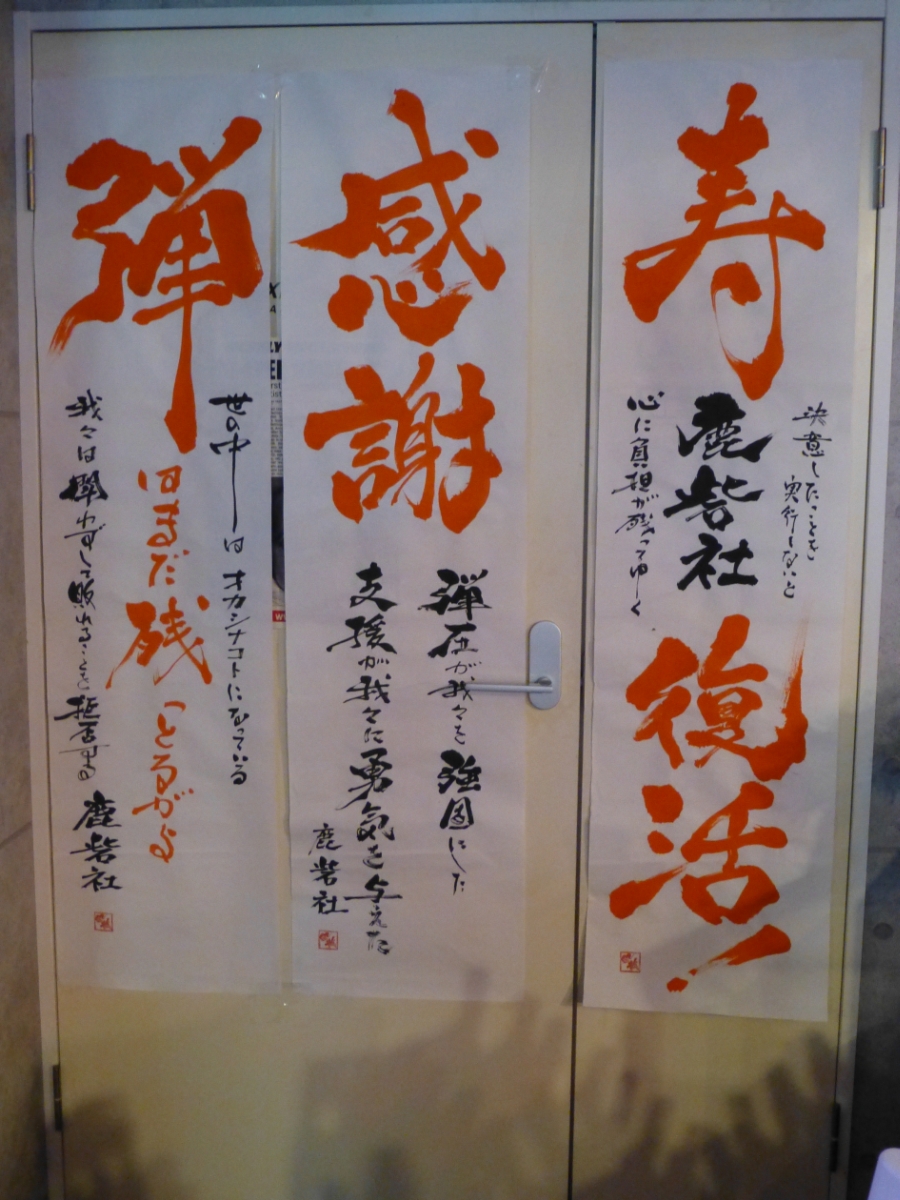 寿
決意したことを
実行しないと
鹿砦社
心に負担が残ってゆく
復活!
感謝
弾圧が我々を強固にした
支援が我々に勇気を与えた
鹿砦社
弾
世の中はオカシナコトになっている
はまだ残っとるがよ
我々は闘わずして敗れることを拒否する
鹿砦社